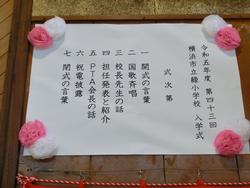 令和五年度 第四十三回
横浜市立緑小学校 入学式
式次第
一 開式の言葉
二 国歌斉唱
三 校長先生の話
四 担任発表と紹介
五 PTA会長の話
六 祝電披露
七 閉式の言葉